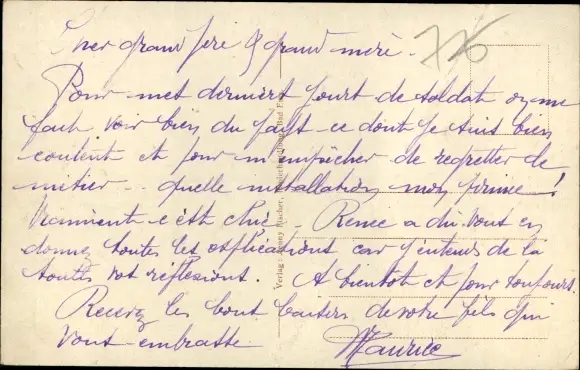 Cher grand père & grand mère.
776
Pour mes derniers jours de soldat on me
fait voir bien du pays ce dont je suis bien
content et pour m'empêcher de regretter le
métier.. quelle installation mon
Vraiment c'est chic. Renée a dû vous en
donnez toutes les explications car j'entends de la
toutes vos réflexions. A bientôt et pour toujours.
Recevez les bons baisers de votre fils qui
vous embrasse. Maurice
Verlag Buchhandlung, Bad